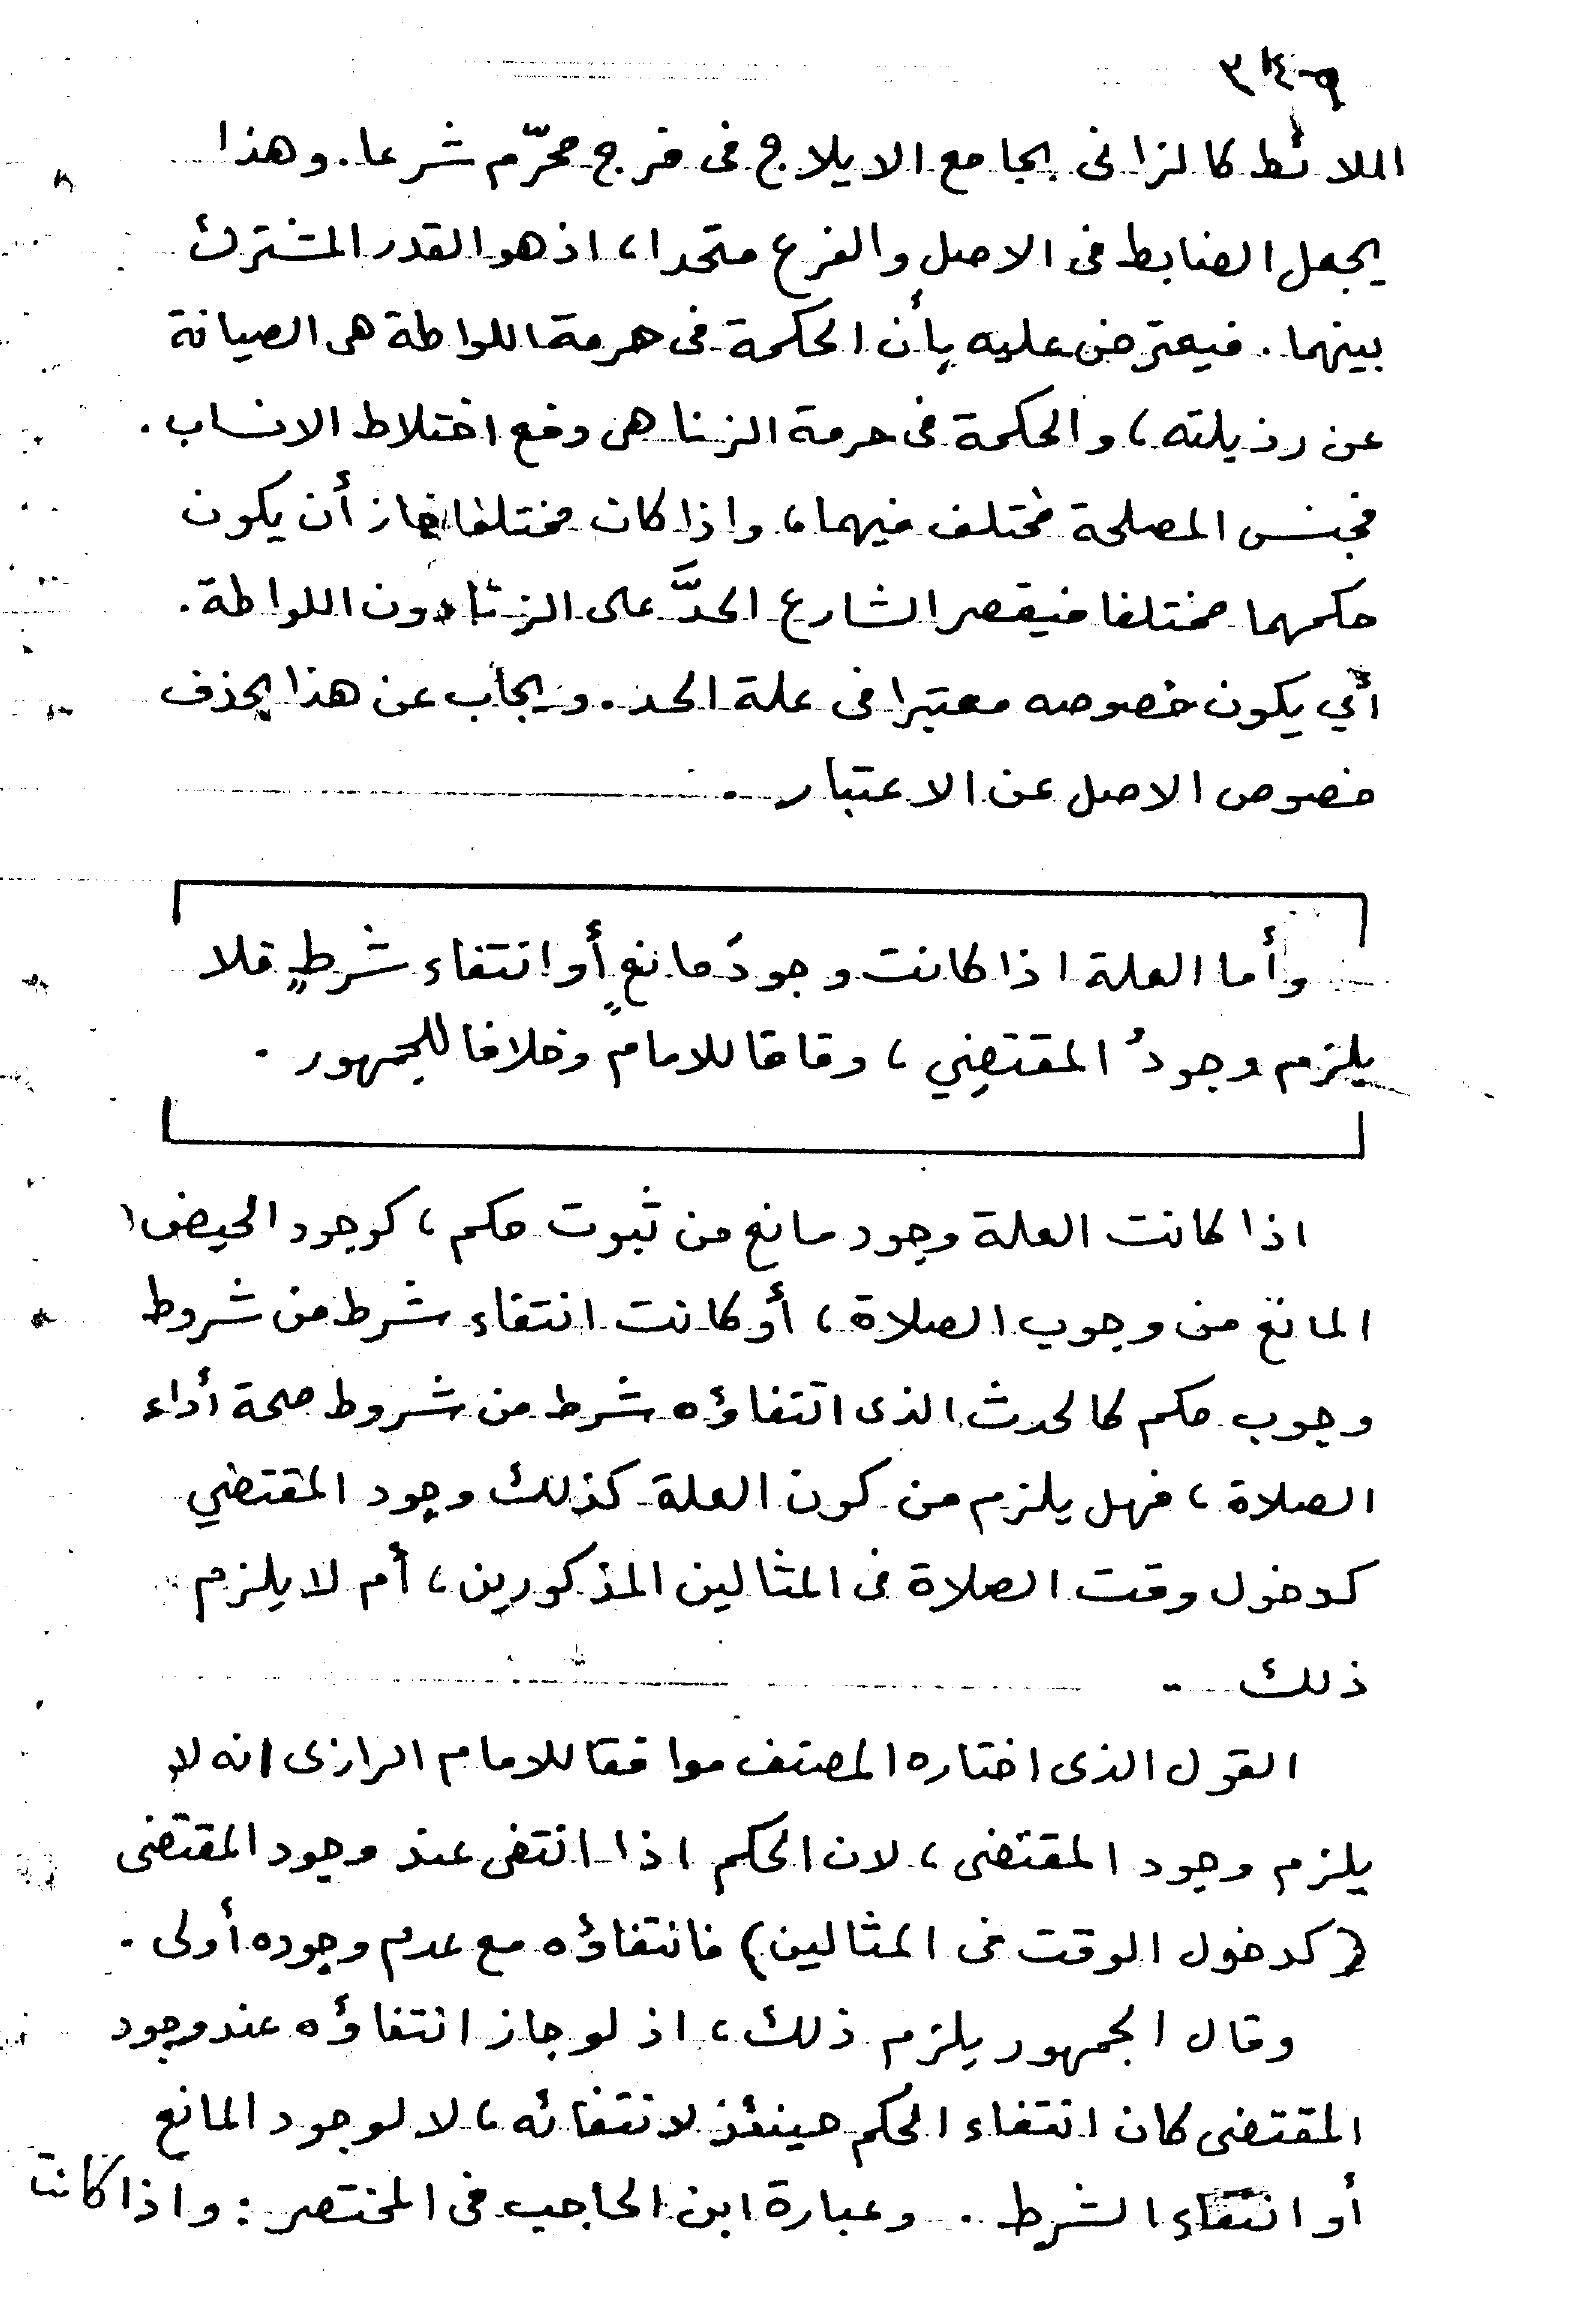 اللائط كالزانى بجامع الايلاج فى فرج محرّم شرعا. وهذا
يجعل الضابط فى الاصل والفرع متحدا، اذ هو القدر المشترك
بينهما. فيعترض عليه بأن الحكمة فى حرمة اللواطة هى الصيانة
عن رذيلته، والحكمة فى حرمة الزنا هى دفع اختلاط الانساب.
فجنس المصلحة مختلف فيهما، واذا كان مختلفا فجاز أن يكون
حكمهما مختلفا فيقصر الشارع الحدَّ على الزنا دون اللواطة.
أي يكون خصوصه معتبرا فى علة الحد. ويجاب عن هذا بحذف
خصوص الاصل عن الاعتبار.
وأما العلة اذا كانت وجودَ مانعٍ أو انتفاء شرطٍ فلا
يلزم وجودُ المقتضِي، وفاقا للامام وخلافا للجمهور.
اذا كانت العلة وجود مانع من ثبوت حكم، كوجود الحيض
المانع من وجوب الصلاة، أو كانت انتفاء شرط من شروط
وجوب حكم كالحدث الذى انتفاؤه شرط من شروط صحة أداء
الصلاة، فهل يلزم من كون العلة كذلك وجود المقتضي
كدخول وقت الصلاة فى المثالين المذكورين، أم لا يلزم
ذلك.
القول الذى اختاره المصنف موافقا للامام الرازى انه لا
يلزم وجود المقتضى، لان الحكم اذا انتفى عند وجود المقتضى
(كدخول الوقت فى المثالين) فانتفاؤه مع عدم وجوده أولى.
وقال الجمهور يلزم ذلك، اذ لو جاز انتفاؤه عند وجود
المقتضى كان انتفاء الحكم حينئذ لانتفائه، لا لوجود المانع
أو انتفاء الشرط. وعبارة ابن الحاجب فى المختصر: واذا كانت